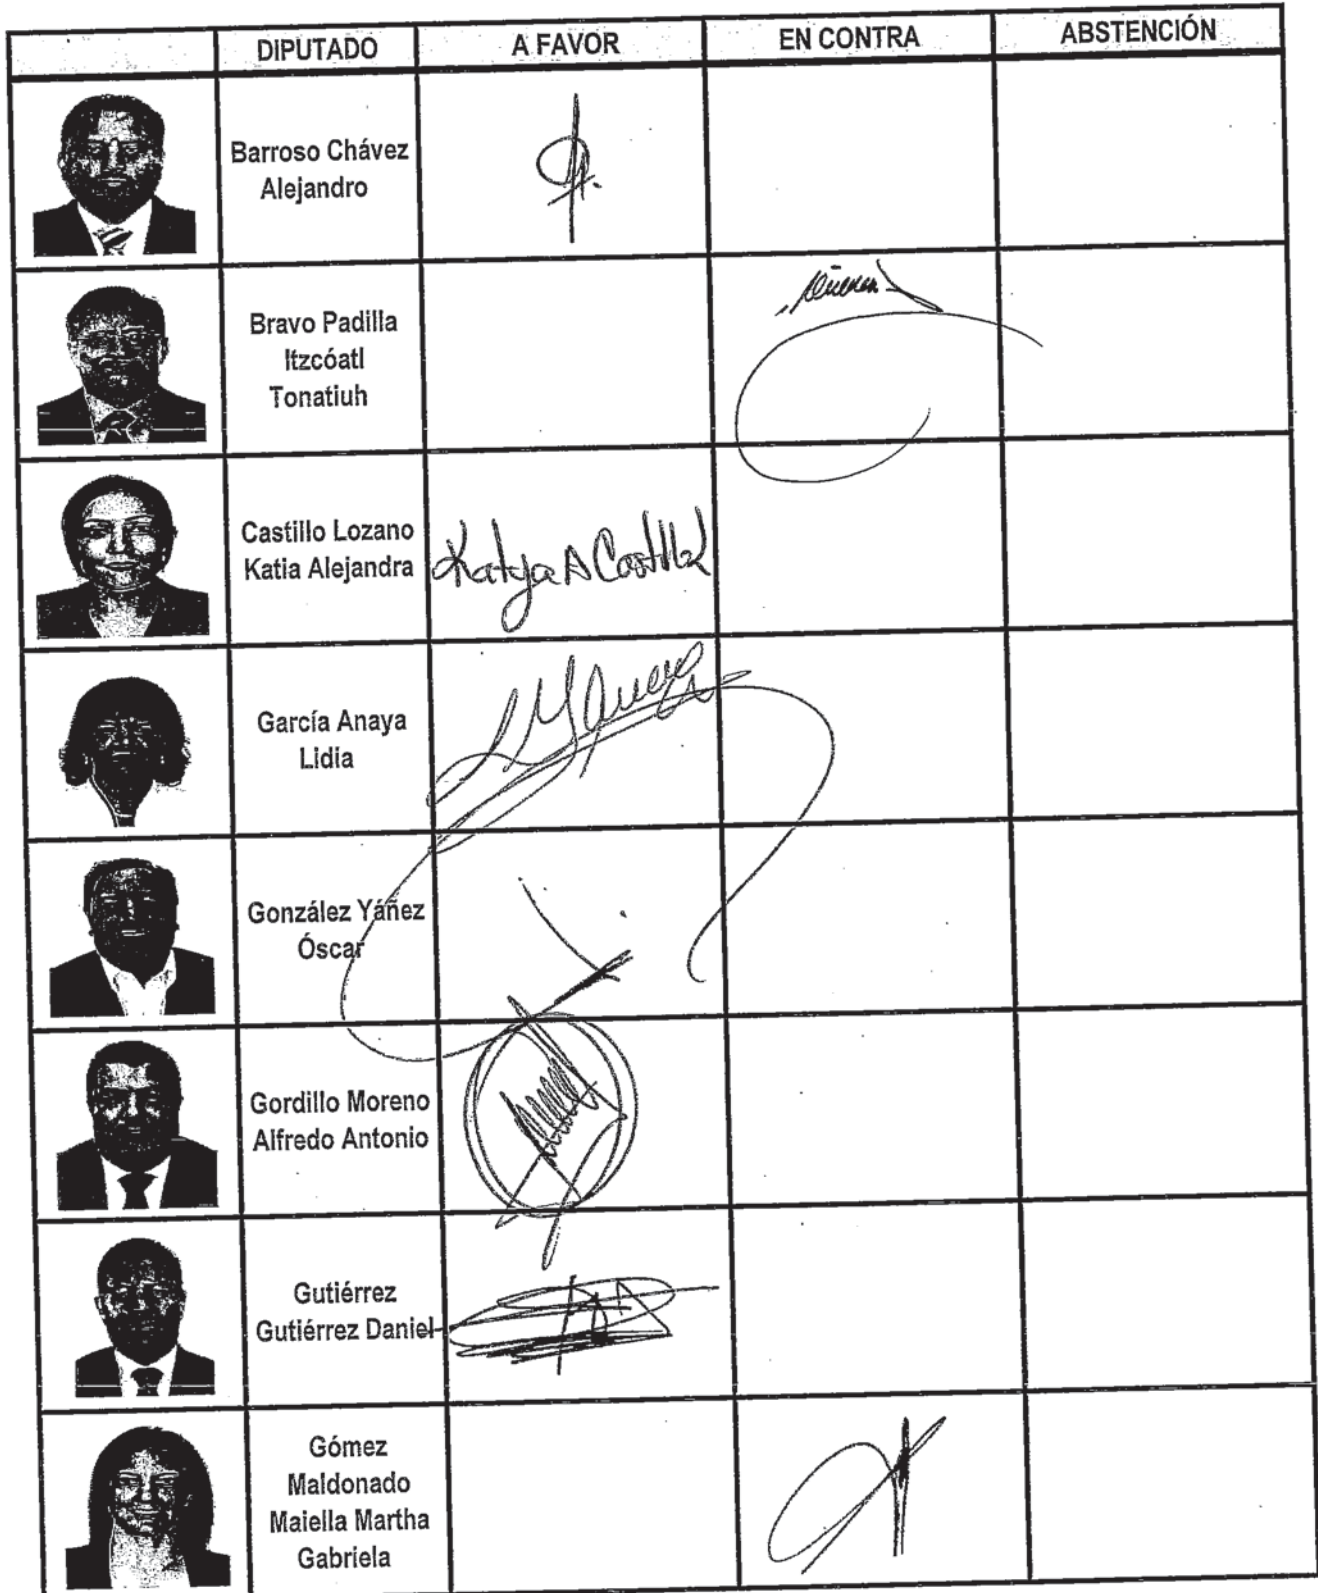 DIPUTADO A FAVOR EN CONTRA ABSTENCIÓN
Barroso Chávez
Alejandro
Bravo Padilla
Itzcóatl
Tonatiuh
Castillo Lozano
Katia Alejandra
Katya A Castillo
García Anaya
Lidia
González Yáñez
Óscar
Gordillo Moreno
Alfredo Antonio
Gutiérrez
Gutiérrez Daniel
Gómez
Maldonado
Maiella Martha
Gabriela